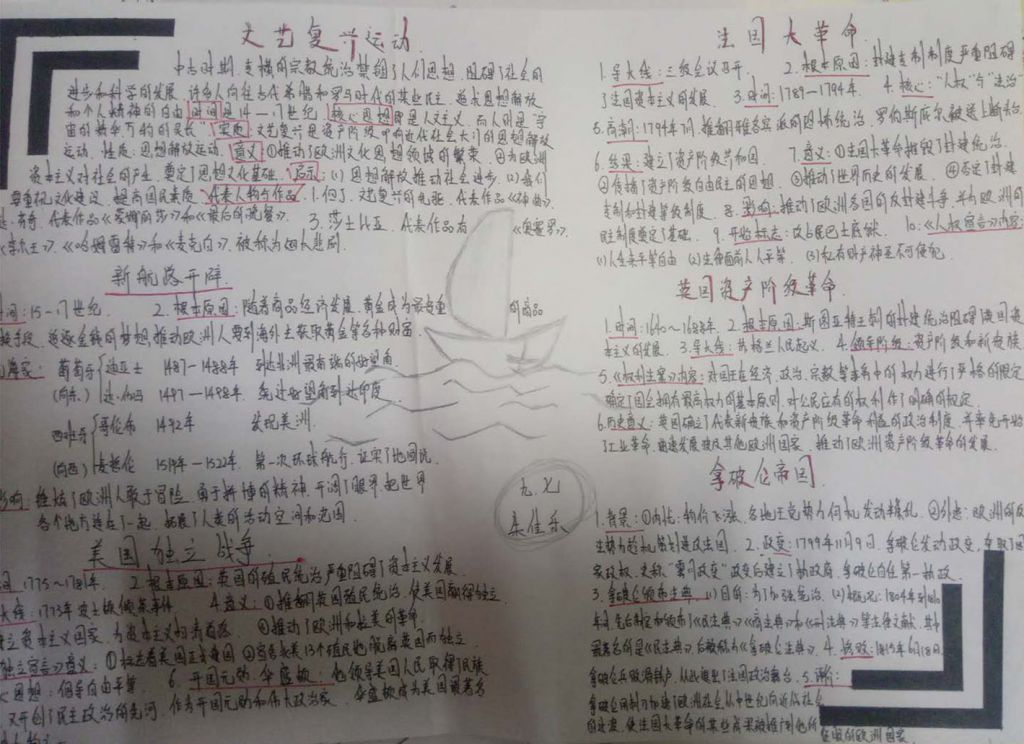 文艺复兴运动
中古时期，专横的宗教统治禁锢了人们思想，阻碍了社会的
进步和科学的发展，许多人向往古代希腊和罗马时代的某些民主，追求思想解放
和个人精神的自由 时间：是14—17世纪 核心思想：即是人文主义，而人则是宇
宙的精华万物的灵长 实质：文艺复兴是资产阶级 近代社会 们的思想解放
运动，性质：思想解放运动，意义：①推动了欧洲文化思想领域的繁荣 ②为欧洲
资本主义对社会的产生，奠定了思想文化基础，启示：(1)思想解放推动社会进步，(2)我们
要重视文化建设，提高国民素质，代表人物与作品：1.但丁，文艺复兴的先驱，代表作品《神曲》
芬奇，代表作品《蒙娜丽莎》和《最后的晚餐》 3.莎士比亚，代表作品有《奥赛罗》
《李尔王》、《哈姆雷特》和《麦克白》，被称为四大悲剧.
新航路开辟
间：15-17世纪. 2.根本原因：随着商品经济发展，黄金成为最贵重的商品
换手段，追逐金钱的梦想推动欧洲人要到海外去获取黄金等各种财富.
葡萄牙 迪亚士 1487-1488年 到达非洲最南端的好望角
(向东) 达·伽马 1497-1498年 绕过好望角到达印度
西班牙 哥伦布 1492年 发现美洲
(向西) 麦哲伦 1519年-1522年，第一次环球航行，证实了地圆说
影响：锻炼了欧洲人敢于冒险，勇于拼搏的精神，开阔了眼界，把世界
各个地方连在了一起，拓展了人类的活动空间和范围.
美国独立战争
间，1775～1781年. 2.根本原因：英国的殖民统治严重阻碍了资本主义发展.
火线：1773年波士顿倾茶事件 4.意义：①推翻英国殖民统治，使美国赢得独立
立资本主义国家，为资本主义扫清道路 ②推动了欧洲和拉美的革命.
独立宣言》意义：①标志着美国正式建国 ②宣告北美13个殖民地脱离英国而独立
思想：倡导自由平等. 6.开国元勋，华盛顿：他领导美国人民取得了民族
又开创了民主政治的先河，作为开国元勋和伟大政治家，华盛顿成为美国最著名
九.义
柔佳乐
法国大革命.
1.导火线：三级会议召开. 2.根本原因：封建专制制度严重阻碍
了法国资本主义的发展. 3.时间：1789-1794年. 4.核心："人权"与"法治"
5.高潮：1794年7月，推翻雅各宾派的恐怖统治，罗伯斯庇尔被送上断头台.
6.结果：建立了资产阶级共和国. 7.意义：①法国大革命摧毁了封建统治.
②传播了资产阶级自由民主的思想. ③推动了世界历史的发展. ④否定了封建
专制和封建等级制度. 8.影响：推动了欧洲各国的反封建斗争，并为欧洲的
民主制度奠定了基础. 9.开始标志：攻占巴士底狱. 10:《人权宣言》内容：
(1)人生来平等自由 (2)法律面前人人平等. (3)私有财产神圣不可侵犯.
英国资产阶级革命.
1.时间：1640～1688年. 2.根本原因：斯图亚特王朝的封建统治阻碍英国资
本主义的发展. 3.导火线：苏格兰人民起义. 4.领导阶级：资产阶级和新贵族
5.《权利法案》内容：对国王在经济、政治、宗教等事务中的权力进行了严格的限定
确定了国会拥有最高权力的基本原则，对公民应有的权利作了明确的规定.
6.历史意义：英国确立了代表新贵族和资产阶级革命利益的政治制度，并率先开始
了工业革命，高速发展被其他欧洲国家. 推动了欧洲资产阶级革命的发展.
拿破仑帝国.
1.背景：①内忧：物价飞涨，各地王党势力伺机发动叛乱. ②外患：欧洲的反
法势力趁机策划进攻法国. 2.政变：1799年11月9日，拿破仑发动政变，夺取了国
家政权，史称"雾月政变"政变后建立了执政府，拿破仑自任第一执政.
3.拿破仑颁布法典，(1)目的：为了加强统治，(2)概况：1804年到1810
年间先后制定和颁布《民法典》《商法典》和《刑法典》等法律文献，其中
最著名的是《民法典》后被称为《拿破仑法典》. 4.结败：1815年6月18日，
拿破仑兵败滑铁卢，从此退出了法国政治舞台. 5.评价：
拿破仑用剑 加速了欧洲社会从中世纪向近代社会
的过渡，使法国大革命的某些成果被推广到他所
征服的欧洲国家.